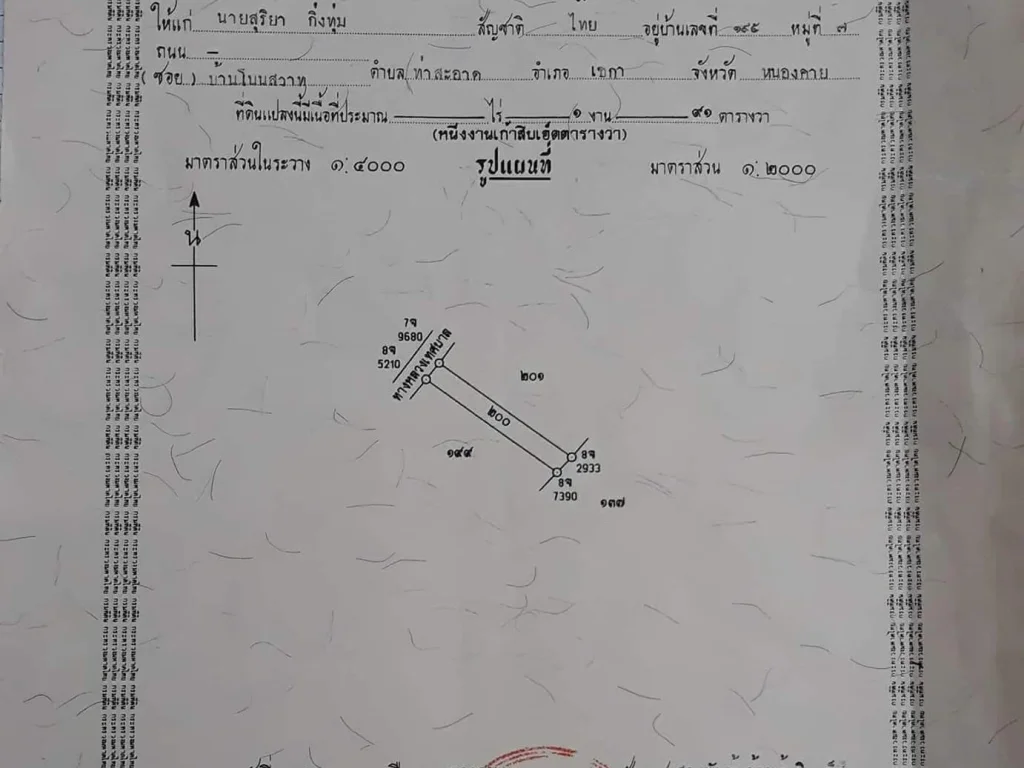 ให้แก่ นายสุริยา กิ่งทุ่ม สัญชาติ ไทย อยู่บ้านเลขที่ ๑๙๕ หมู่ที่ ๗
ถนน –
(ซอย) บ้านโนนสวาท ตำบล ท่าสะอาด อำเภอ เซกา จังหวัด หนองคาย
ที่ดินแปลงนี้มีเนื้อที่ประมาณ ไร่ ๑ งาน ๙๑ ตารางวา
(หนึ่งงานเก้าสิบเอ็ดตารางวา)
มาตราส่วนในระวาง ๑:๔๐๐๐ รูปแผนที่ มาตราส่วน ๑:๒๐๐๐
น
7จ
9680
8จ
5210
ทางหลวงเทศบาล
๒๐๑
๒๐๐
๑๙๙
8จ
2933
8จ
7390
๑๓๗